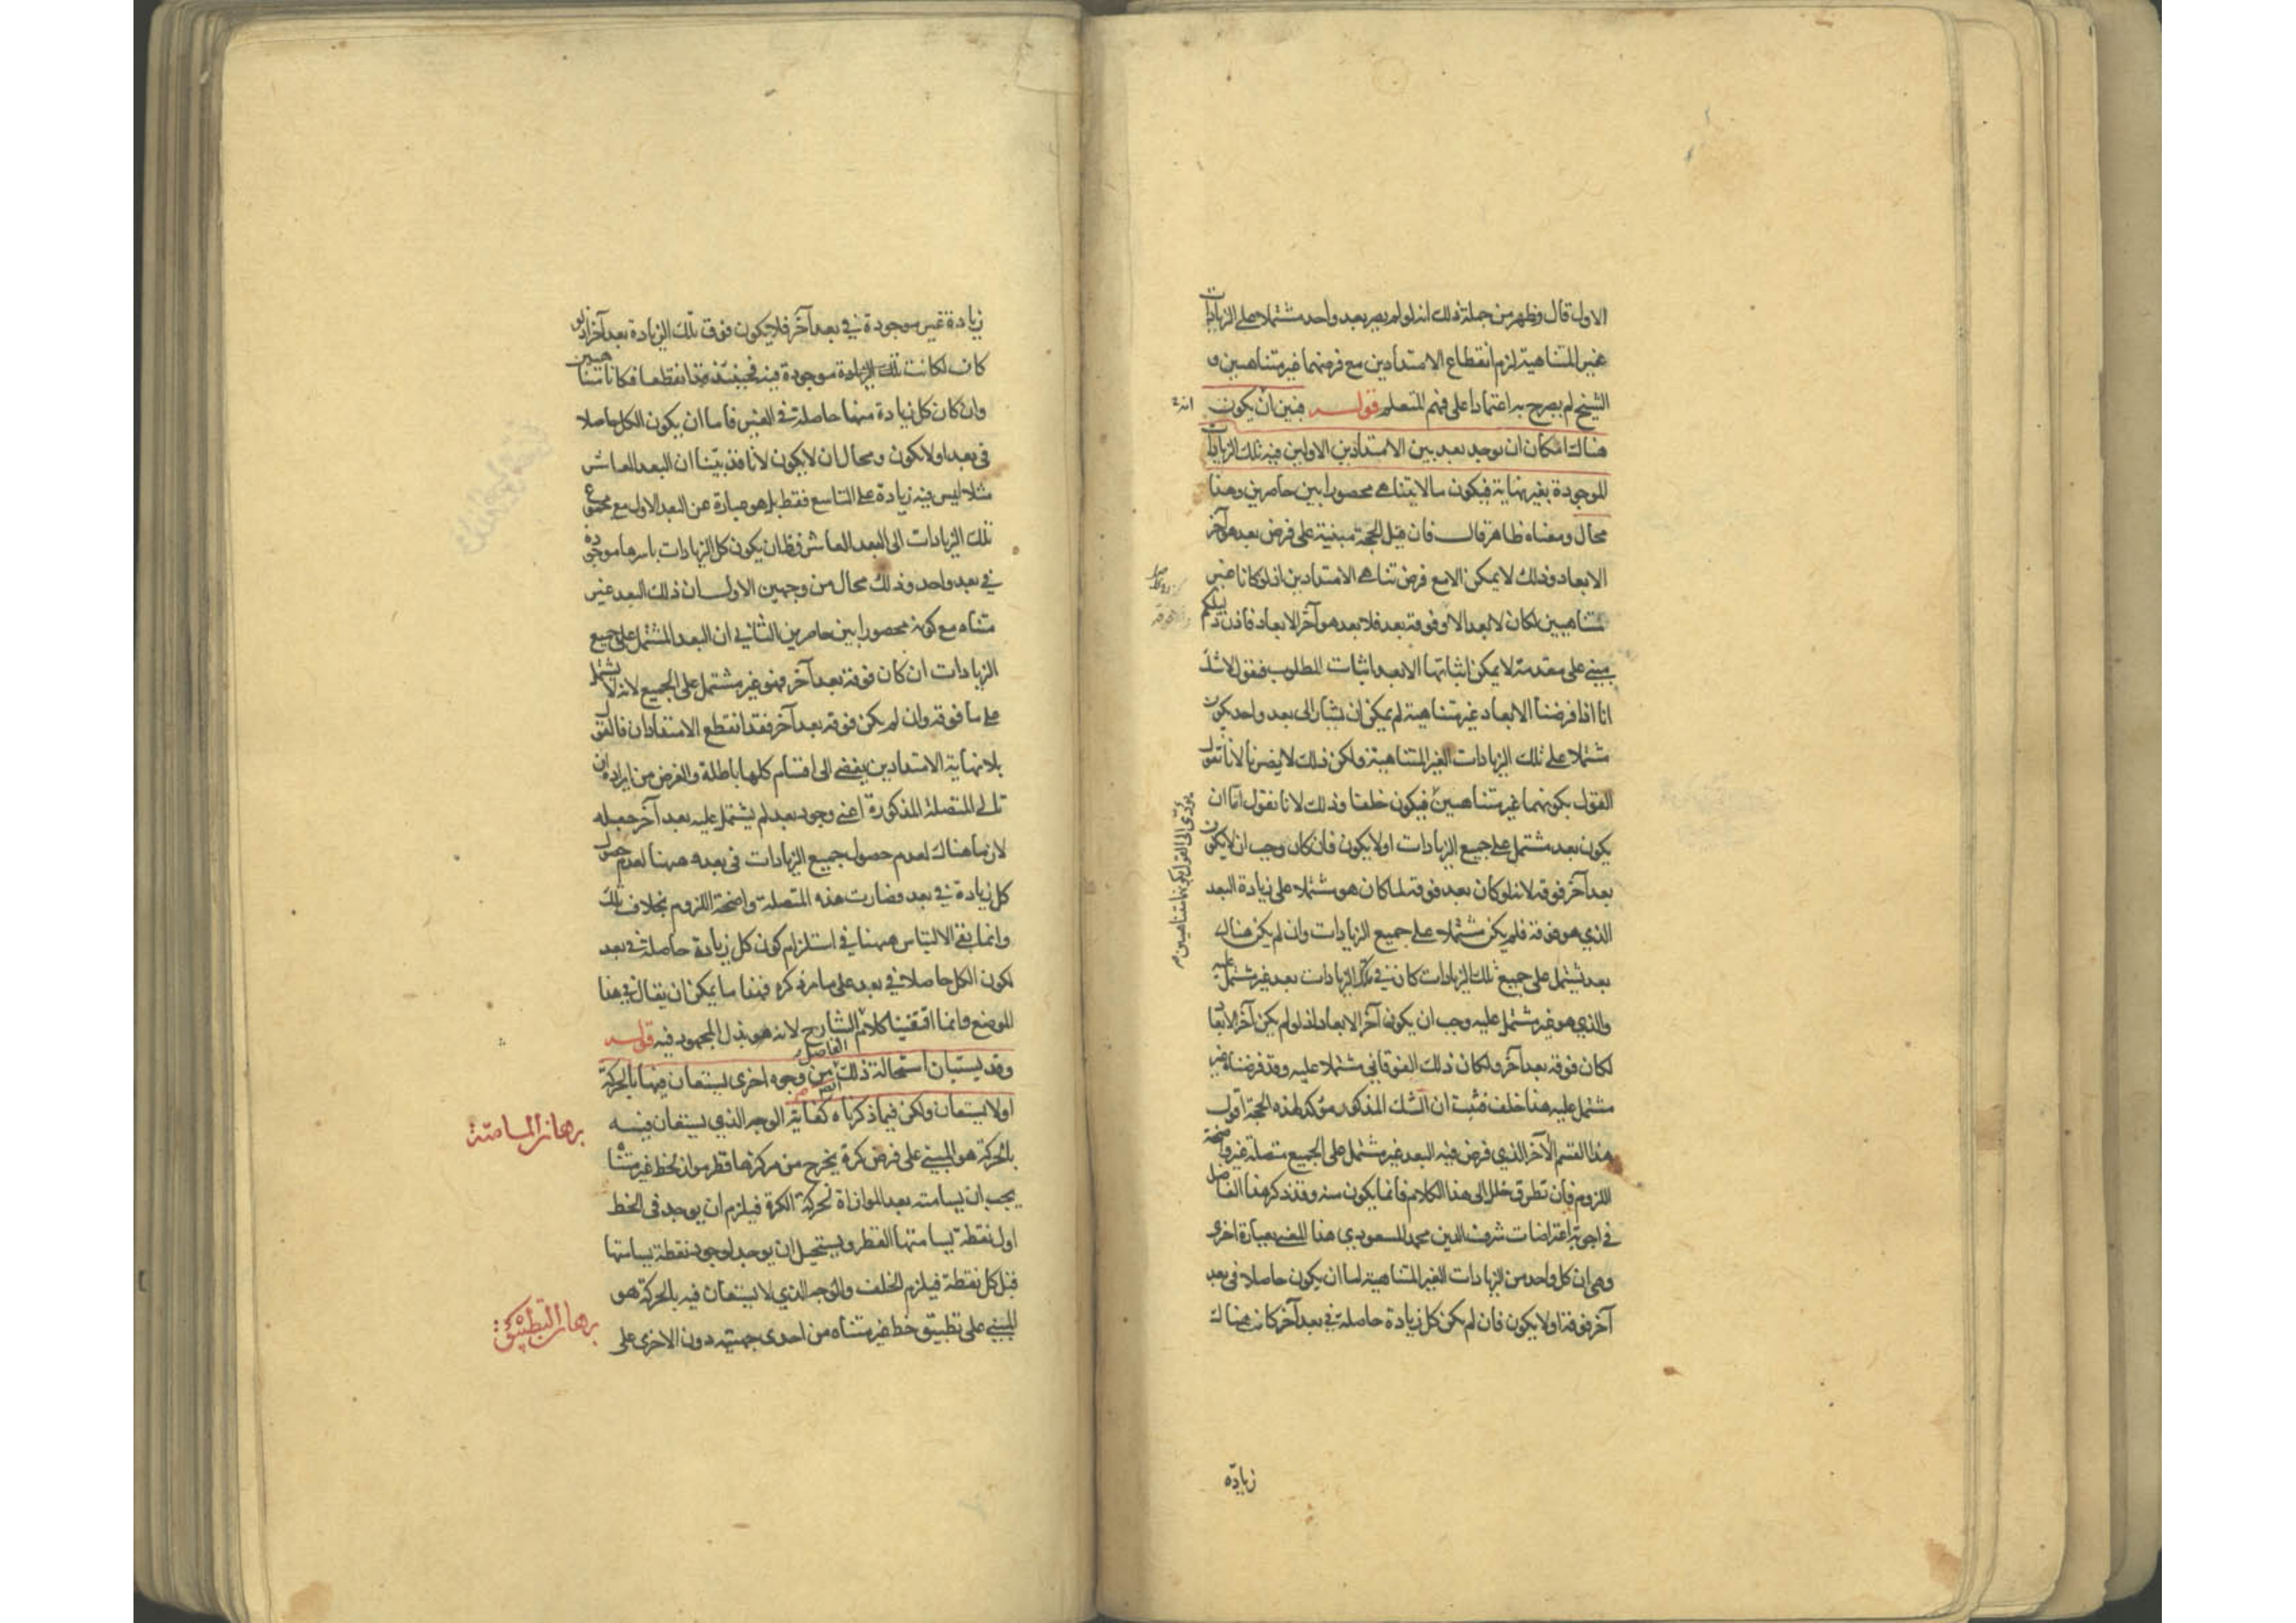 الاول قال وظهر من جملة ذلك انه لو لم يصر بعد واحد مشتملا على الزيادات
غير المتناهية لزم انقطاع الامتدادين مع فرضهما غير متناهيين و
الشيخ لم يصرح به اعتمادا على فهم المتعلم قوله فبين ان يكون
هناك امكان ان يوجد بعد بين الامتدادين الاولين فيه تلك الزيادات
الموجودة بغير نهاية فيكون ما لا يتناهى محصورا بين حاصرين وهذا
محال ومعناه ظاهر قال فان قيل الحجة مبنية على فرض بعد هو آخر
الابعاد وذلك لا يمكن الا مع فرض تناهى الامتدادين اذ لو كانا غير
متناهيين لكان لا بعد الا وفوقه بعد فلا بعد هو آخر الابعاد فاذن دليلكم
مبنى على مقدمة لا يمكن اثباتها الا بعد اثبات المطلوب فنقول لا شك
انا اذا فرضنا الابعاد غير متناهية لم يمكن ان يشار الى بعد واحد يكون
مشتملا على تلك الزيادات الغير المتناهية ولكن ذلك لا يضرنا لانا نقول
القول بكونهما غير متناهيين فيكون خلفا وذلك لانا نقول اما ان
يكون بعد مشتمل على جميع الزيادات او لا يكون فان كان وجب ان لا يكون
بعد آخر فوقه لانه لو كان بعد فوقه لما كان هو مشتملا على زيادة البعد
الذي هو فوقه فلم يكن مشتملا على جميع الزيادات وان لم يكن هناك
بعد يشتمل على جميع تلك الزيادات كان في تلك الزيادات بعد غير مشتمل عليه
والذي هو غير مشتمل عليه وجب ان يكون آخر الابعاد اذ لو لم يكن آخر الابعاد
لكان فوقه بعد آخر ولكان ذلك الفوقاني مشتملا عليه وقد فرضناه غير
مشتمل عليه هذا خلف فثبت ان الشك المذكور مؤكد لهذه الحجة اقول
هذا القسم الآخر الذي فرض فيه البعد غير مشتمل على الجميع متصلة غير واضحة
اللزوم فان تطرق خلل الى هذا الكلام فانما يكون منه وقد ذكر هذا الفاضل
في اجوبة اعتراضات شرف الدين محمد المسعودي هذا المعنى بعبارة اخرى
وهي ان كل واحد من الزيادات الغير المتناهية اما ان يكون حاصلا في بعد
آخر فوقه او لا يكون فان لم يكن كل زيادة حاصلة في بعد آخر كان هناك
يؤدى الى القول بكونهما متناهيين
زيادة
زيادة غير موجودة في بعد آخر فلا يكون فوق تلك الزيادة بعد آخر اذ لو
كان لكانت تلك الزيادة موجودة فيه فحينئذ قد انقطعا فكانا متناهيين
وان كان كل زيادة منها حاصلة في الغير فاما ان يكون الكل حاصلا
في بعد او لا يكون ومحال ان لا يكون لانا قد بيّنا ان البعد العاشر
مثلا ليس فيه زيادة على التاسع فقط بل هو عبارة عن البعد الاول مع مجموع
تلك الزيادات الى البعد العاشر فظ ان يكون كل الزيادات باسرها موجودة
في بعد واحد وذلك محال من وجهين الاول ان ذلك البعد غير
متناه مع كونه محصورا بين حاصرين الثاني ان البعد المشتمل على جميع
الزيادات ان كان فوقه بعد آخر فهو غير مشتمل على الجميع لانه لا يشتمل
على ما فوقه وان لم يكن فوقه بعد آخر فقد انقطع الامتدادان فالقول
بلا نهاية الامتدادين يفضي الى اقسام كلها باطلة والغرض من ايراده ان
تالى المتصلة المذكورة اعني وجود بعد لم يشتمل عليه بعد آخر جعله
لازما هناك لعدم حصول جميع الزيادات في بعد وههنا لعدم حصول
كل زيادة في بعد فصارت هذه المتصلة واضحة اللزوم بخلاف تلك
وانما بقى الالتباس ههنا في استلزام كون كل زيادة حاصلة في بعد
لكون الكل حاصلا في بعد على ما مر ذكره فهذا ما يمكن ان يقال في هذا
الموضع وانما اقتفينا كلام الشارح لانه هو بذل المجهود فيه قوله
الفاضل
وقد يستبان استحالة ذلك من وجوه اخرى يستعان فيها بالحركة
او لا يستعان ولكن فيما ذكرناه كفاية الوجه الذي يستعان فيه
بالحركة هو المبنى على فرض كرة يخرج من مركزها قطر مواز لخط غير متناه
يجب ان يسامته بعد الموازاة لحركة الكرة فيلزم ان يوجد في الخط
اول نقطة يسامتها القطر ويستحيل ان يوجد لوجود نقطة يسامتها
قبل كل نقطة فيلزم الخلف والوجه الذي لا يستعان فيه بالحركة هو
المبنى على تطبيق خط غير متناه من احدى جهتيه دون الاخرى على
برهان المسامتة
برهان التطبيق